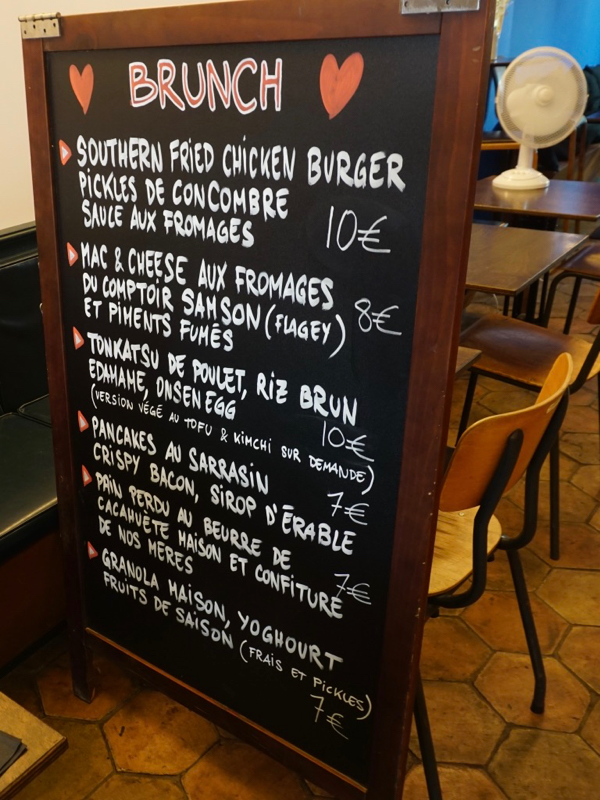 BRUNCH
SOUTHERN FRIED CHICKEN BURGER
PICKLES DE CONCOMBRE
SAUCE AUX FROMAGES
10€
MAC & CHEESE AUX FROMAGES
DU COMPTOIR SAMSON (FLAGEY)
ET PIMENTS FUMÉS
8€
TONKATSU DE POULET, RIZ BRUN
EDAMAME, ONSEN EGG
(VERSION VÉGÉ AU TOFU & KIMCHI SUR DEMANDE)
10€
PANCAKES AU SARRASIN
CRISPY BACON, SIROP D'ÉRABLE
7€
PAIN PERDU AU BEURRE DE
CACAHUÈTE MAISON ET CONFITURE
DE NOS MÈRES
7€
GRANOLA MAISON, YOGHOURT
FRUITS DE SAISON (FRAIS ET PICKLES)
7€